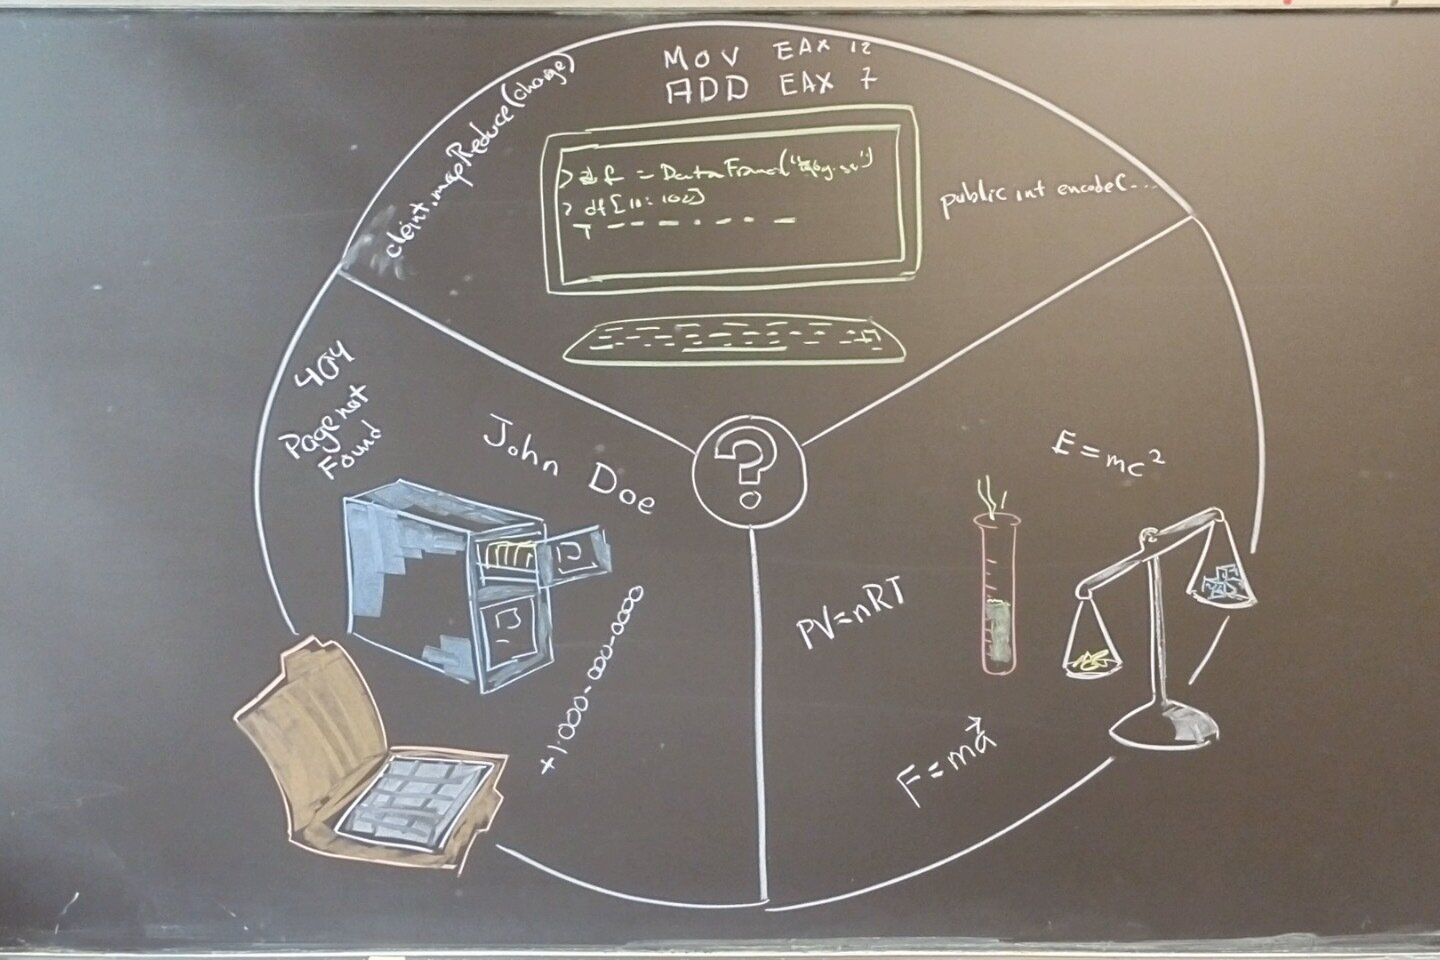 MOV EAX 12
ADD EAX 7
cleint.mapReduce(change)
> df = DataFrame("
> df[10:102]
public int encode(...
404
Page not
Found
John Doe
?
E=mc²
PV=nRT
+1-000-000-0000
F=ma⃗